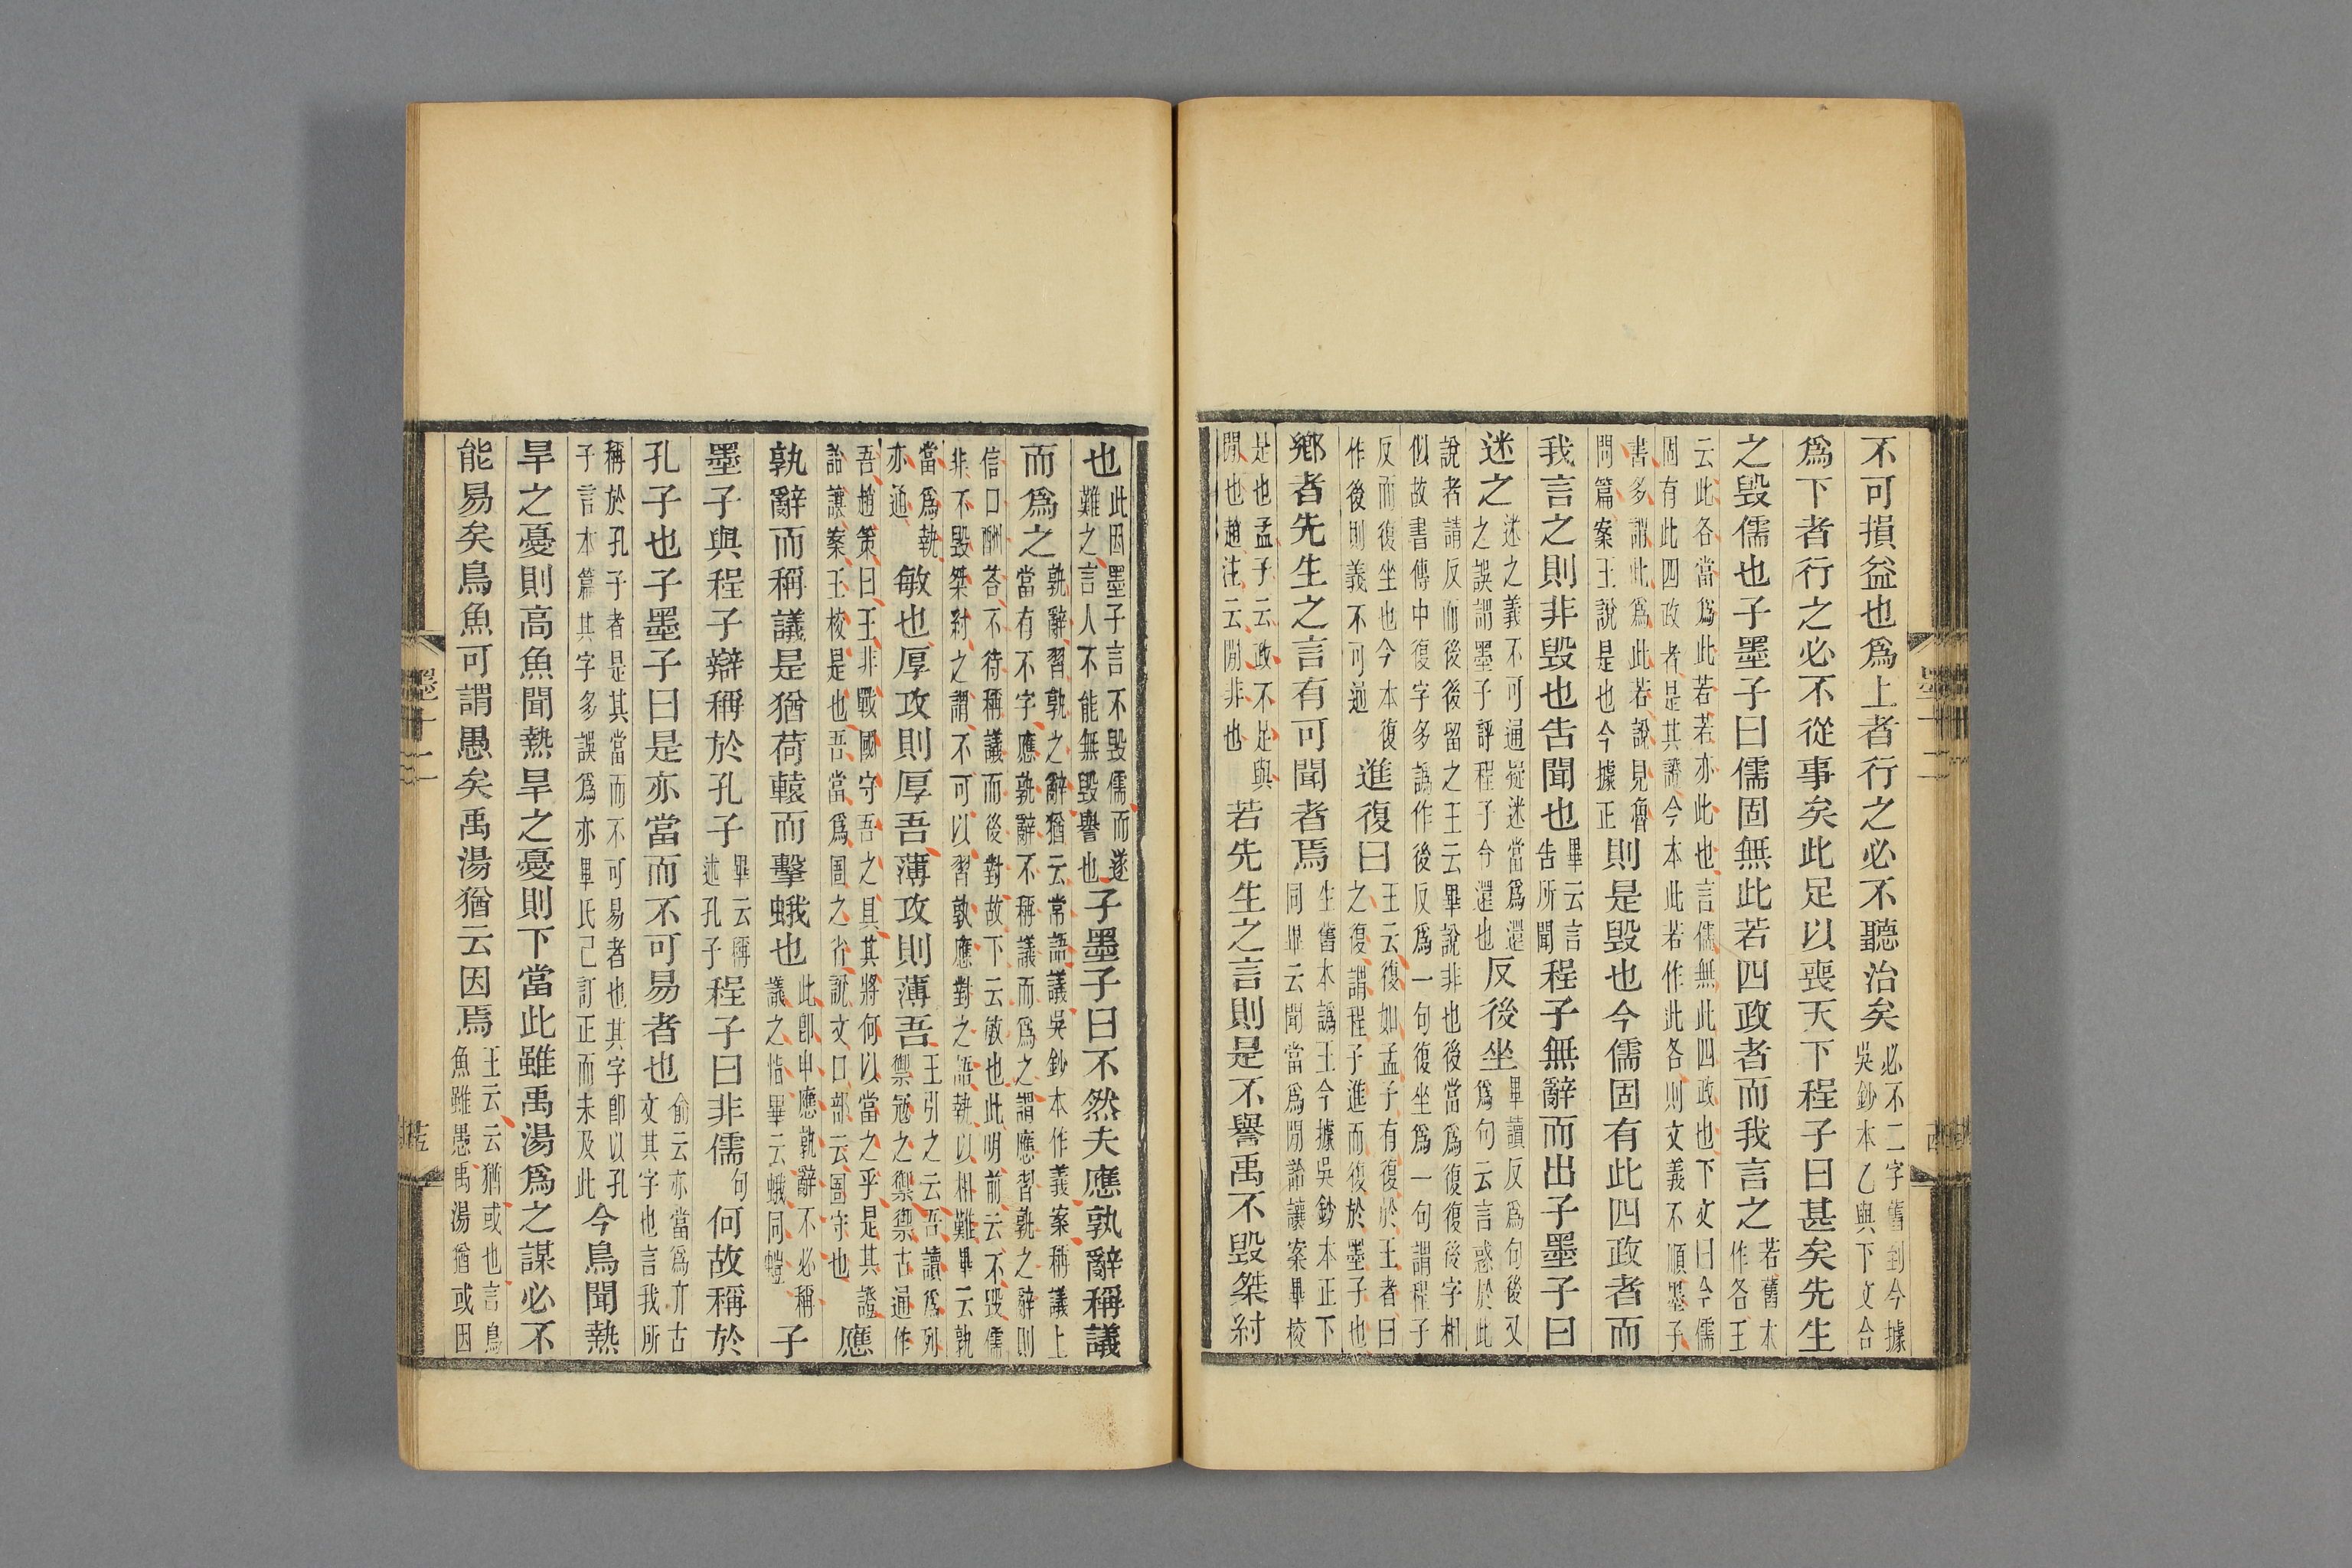 不可損益也爲上者行之必不聽治矣必不二字舊到今據吳鈔本乙與下文合
爲下者行之必不從事矣此足以喪天下程子曰甚矣先生
之毀儒也子墨子曰儒固無此若四政者而我言之若舊本作各王
云此各當爲此若若亦此也言儒無此四政也下文曰今儒固有此四政者是其證今本此若作此各則文義不順墨子
書多謂此爲此若說見魯問篇案王說是也今據正則是毀也今儒固有此四政者而
我言之則非毀也告聞也畢云言告所聞程子無辭而出子墨子曰
迷之迷之義不可通疑迷當爲還之誤謂墨子評程子令還也反後坐畢讀反爲句後又爲句云言惑於此
說者請反而後後留之王云畢說非也後當爲復復後字相似故書傳中復字多譌作後反爲一句復坐爲一句謂程子
反而復坐也今本復作後則義不可通進復曰王云復如孟子有復於王者曰之復謂程子進而復於墨子也
鄉者先生之言有可聞者焉生舊本譌王今據吳鈔本正下同畢云聞當爲閒論讓案畢校
是也孟子云政不足與閒也趙注云閒非也若先生之言則是不譽禹不毀桀紂
也此因墨子言不毀儒而遂難之言人不能無毀譽也子墨子曰不然夫應孰辭稱議
而爲之孰辭習孰之辭猶云常語議吳鈔本作義案稱議上當有不字應孰辭不稱議而爲之謂應習孰之辭則
信口酬荅不待稱議而後對故下云敏也此明前云不毀儒非不毀桀紂之謂不可以習孰應對之語執以相難畢云孰
當爲執亦通敏也厚攻則厚吾薄攻則薄吾王引之云吾讀爲列禦寇之禦禦古通作
吾趙策曰王非戰國守吾之具其將何以當之乎是其證詒讓案王校是也吾當爲圄之省說文囗部云圄守也應
孰辭而稱議是猶荷轅而擊蛾也此卽申應孰辭不必稱議之恉畢云蛾同螘子
墨子與程子辯稱於孔子畢云稱述孔子程子曰非儒句何故稱於
孔子也子墨子曰是亦當而不可易者也俞云亦當爲亓古文其字也言我所
稱於孔子者是其當而不可易者也其字卽以孔子言本篇其字多誤爲亦畢氏已訂正而未及此今鳥聞熱
旱之憂則高魚聞熱旱之憂則下當此雖禹湯爲之謀必不
能易矣鳥魚可謂愚矣禹湯猶云因焉王云云猶或也言鳥魚雖愚禹湯猶或因
墨十二
墨十二